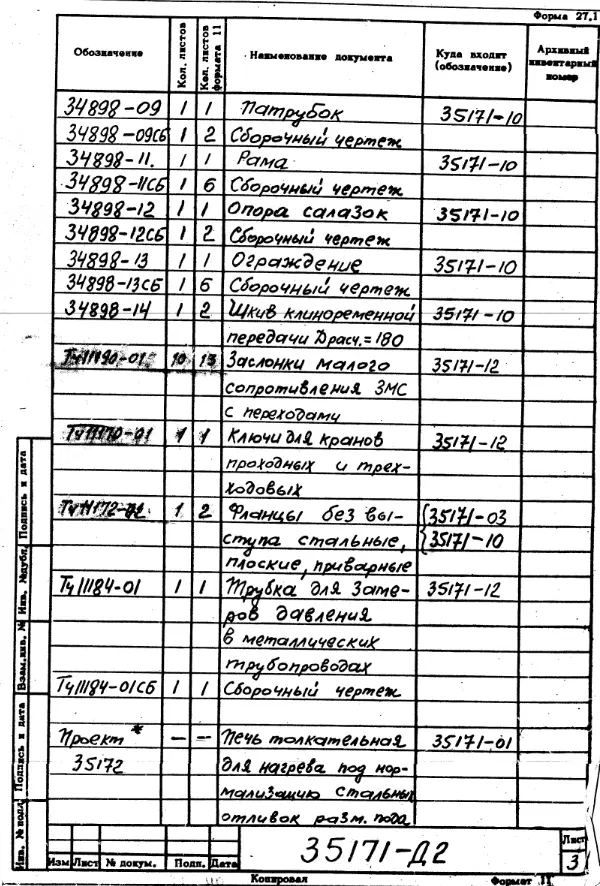 Форма 27.1
Обозначение Кол. листов Кол. листов формата 11 Наименование документа Куда входит (обозначение) Архивный инвентарный номер
34898-09 1 1 Патрубок 35171-10
34898-09СБ 1 2 Сборочный чертеж
34898-11. 1 1 Рама 35171-10
34898-11СБ 1 6 Сборочный чертеж
34898-12 1 1 Опора салазок 35171-10
34898-12СБ 1 2 Сборочный чертеж
34898-13 1 1 Ограждение 35171-10
34898-13СБ 1 6 Сборочный чертеж
34898-14 1 2 Шкив клиноременной 35171-10
передачи Драсч.=180
Тч11190-01 10 13 Заслонки малого 35171-12
сопротивления ЗМС
с переходами
Тч11170-01 1 1 Ключи для кранов 35171-12
проходных и трех-
ходовых
Тч11172-02 1 2 Фланцы без вы- 35171-03
ступа стальные, 35171-10
плоские, приварные
Тч11184-01 1 1 Трубка для Заме- 35171-12
ров давления
в металлических
трубопроводах
Тч11184-01СБ 1 1 Сборочный чертеж
Проект* — — Печь толкательная 35171-01
35172 для нагрева под нор-
мализацию стальных
отливок разм. пода
35171-Д2
Лист
3
Изм Лист № докум. Подп. Дата
Копировал Формат 11
Инв. № подл. Подпись и дата Взам.инв. № Инв. №дубл. Подпись и дата